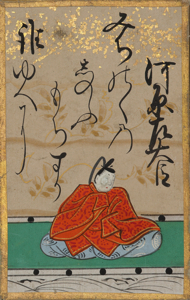 河原左大臣
みちのくの
しのふ
もちすり
誰
ゆへに